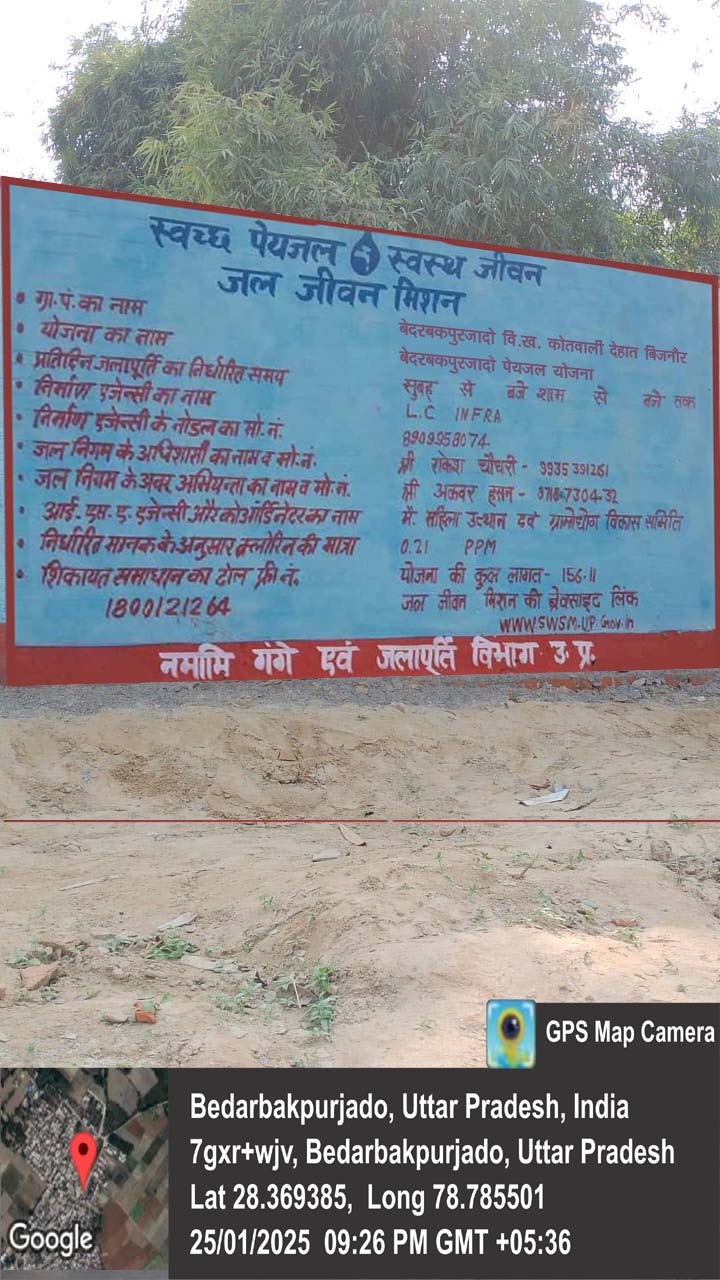 स्वच्छ पेयजल स्वस्थ जीवन
जल जीवन मिशन
• ग्रा.पं.का नाम
बेदरबकपुरजादो वि.ख. कोतवाली देहात बिजनौर
• योजना का नाम
बेदरबकपुरजादो पेयजल योजना
• प्रतिदिन जलापूर्ति का निर्धारित समय
सुबह से बजे शाम से बजे तक
• निर्माण एजेन्सी का नाम
L.C INFRA
• निर्माण एजेन्सी के नोडल का मो.नं.
8909958074
• जल निगम के अधिशासी का नाम व मो.नं.
श्री राकेश चौधरी - 9935391261
• जल निगम के अवर अभियन्ता का नाम व मो.नं.
श्री अकबर हसन -
• आई. एस. ए. एजेन्सी और कोऑर्डिनेटर का नाम
मै. महिला उत्थान एवं ग्रामोद्योग विकास समिति
• निर्धारित मानक के अनुसार क्लोरिन की मात्रा
0.21 PPM
• शिकायत समाधान का टोल फ्री नं.
1800121264
योजना की कुल लागत- 156.11
जल जीवन मिशन की लिंक
WWW.SWSM.UP.Gov.in
नमामि गंगे एवं जलापूर्ति विभाग उ.प्र.
GPS Map Camera
Bedarbakpurjado, Uttar Pradesh, India
7gxr+wjv, Bedarbakpurjado, Uttar Pradesh
Lat 28.369385, Long 78.785501
25/01/2025 09:26 PM GMT +05:36
Google